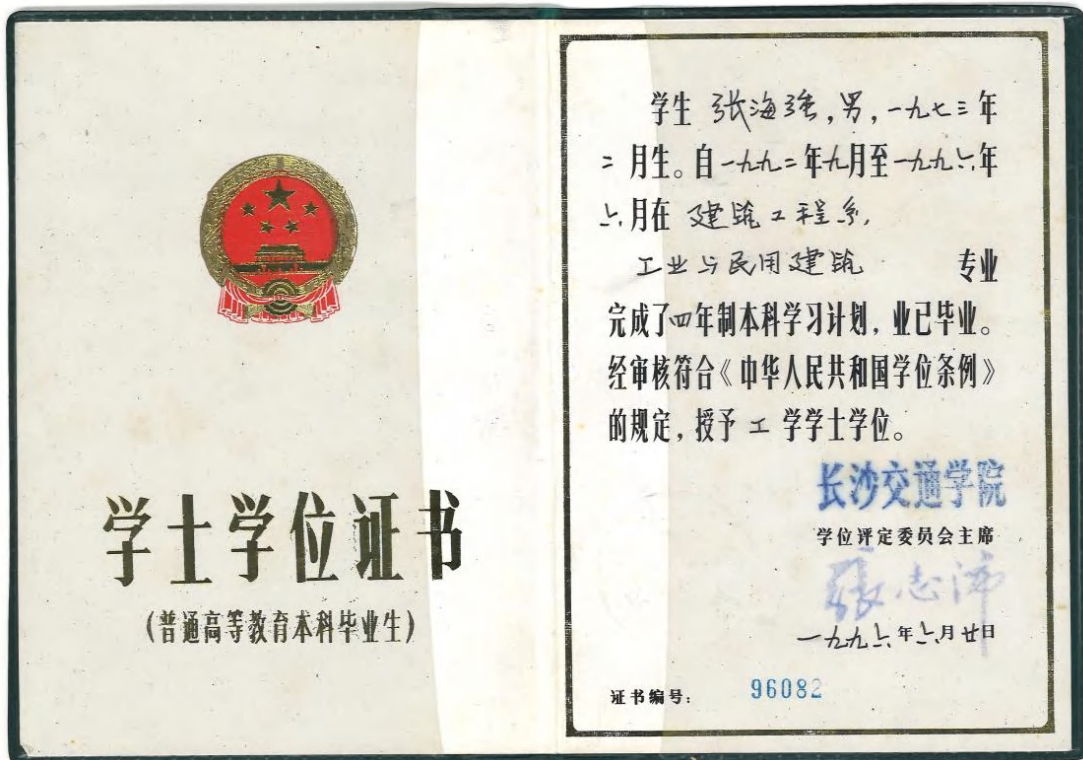 学士学位证书
(普通高等教育本科毕业生)
学生 张海强,男,一九七三年
二月生。自一九九二年九月至一九九六年
六月在 建筑工程系,
工业与民用建筑 专业
完成了四年制本科学习计划,业已毕业。
经审核符合《中华人民共和国学位条例》
的规定,授予 工 学学士学位。
长沙交通学院
学位评定委员会主席
张志沛
一九九六年六月廿日
证书编号: 96082